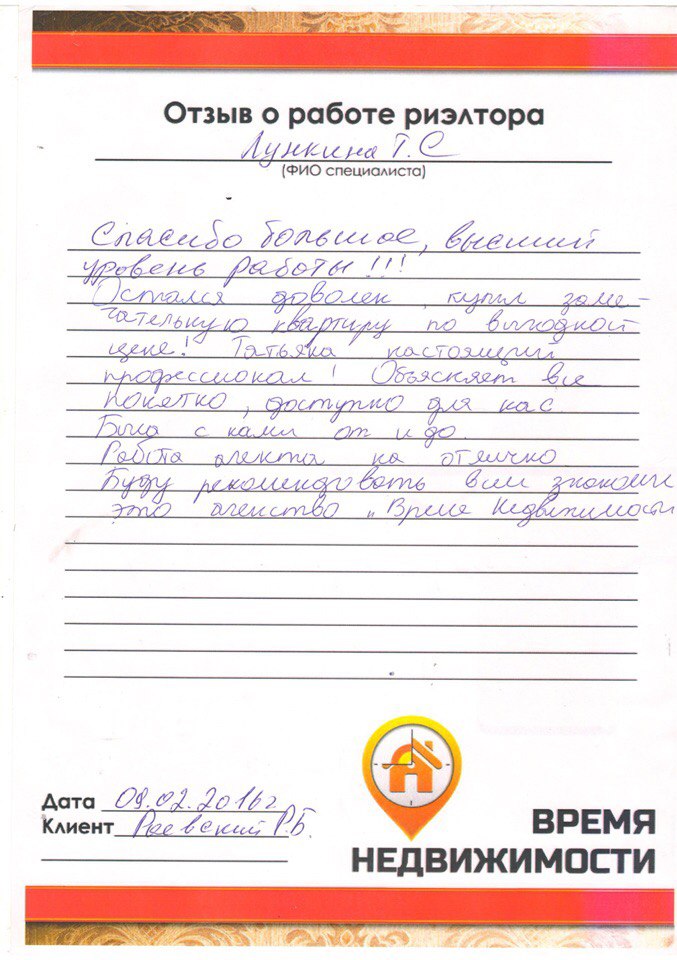 Отзыв о работе риэлтора
Лункина Т.С
(ФИО специалиста)
Спасибо большое, высший
уровень работы!!!
Остался доволен, купил заме-
чательную квартиру по выгодной
цене! Татьяна настоящий
профессионал! Объясняет все
понятно, доступно для нас.
Была с нами от и до.
Работа агента на отлично
Буду рекомендовать всем знакомы
это агенство „Время Недвижимости
Дата 09.02.2016г
Клиент Раевский Р.Б.
ВРЕМЯ
НЕДВИЖИМОСТИ